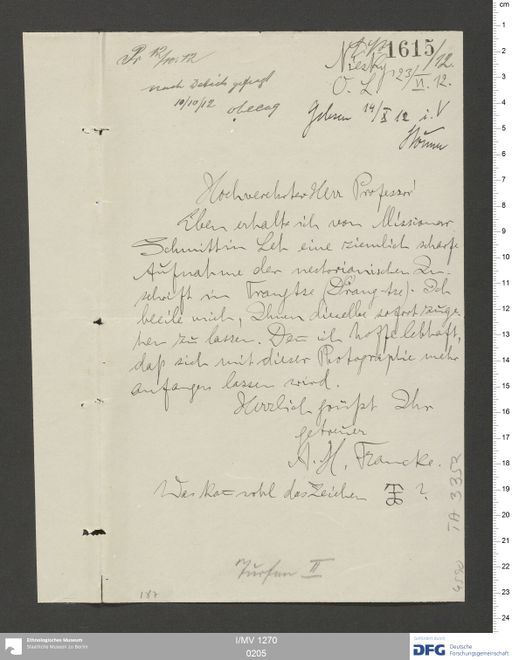 Pr 12/10.12
nach Debatte gefragt
10/10/12
1615/12.
Niesky
O. L. 23/VI. 12.
Gelesen 14/X 12 i. V
Hochverehrter Herr Professor!
Eben erhalte ich von Missionar
Schmitt in Leh eine ziemlich scharfe
Aufnahme der nestorianischen In-
schrift in Trangtse (Drang-tse). Ich
beeile mich, Ihnen dieselbe sofort zuge-
hen zu lassen. Denn ich hoffe lebhaft,
daß sich mit dieser Photographie mehr
anfangen lassen wird.
Herzlich grüßt Ihr
getreuer
A. H. Francke.
Was kann wohl das Zeichen ?
Turfan II
187
TA 3353
Ethnologisches Museum
Staatliche Museen zu Berlin
I/MV 1270
0205
gefördert durch
DFG Deutsche
Forschungsgemeinschaft
cm
1
2
3
4
5
6
7
8
9
10
11
12
13
14
15
16
17
18
19
20
21
22
23
24